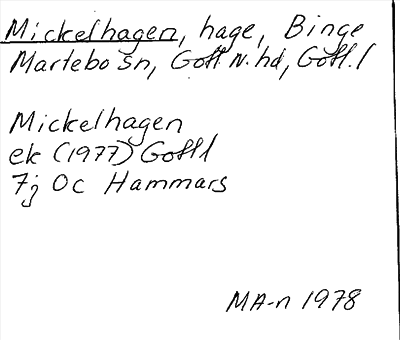 Mickelhagen, hage, Binge
Martebo sn, Gotl N. hd, Gotl. l
Mickelhagen
ek (1977) Gotl l
7j Oc Hammars
MA-n 1978